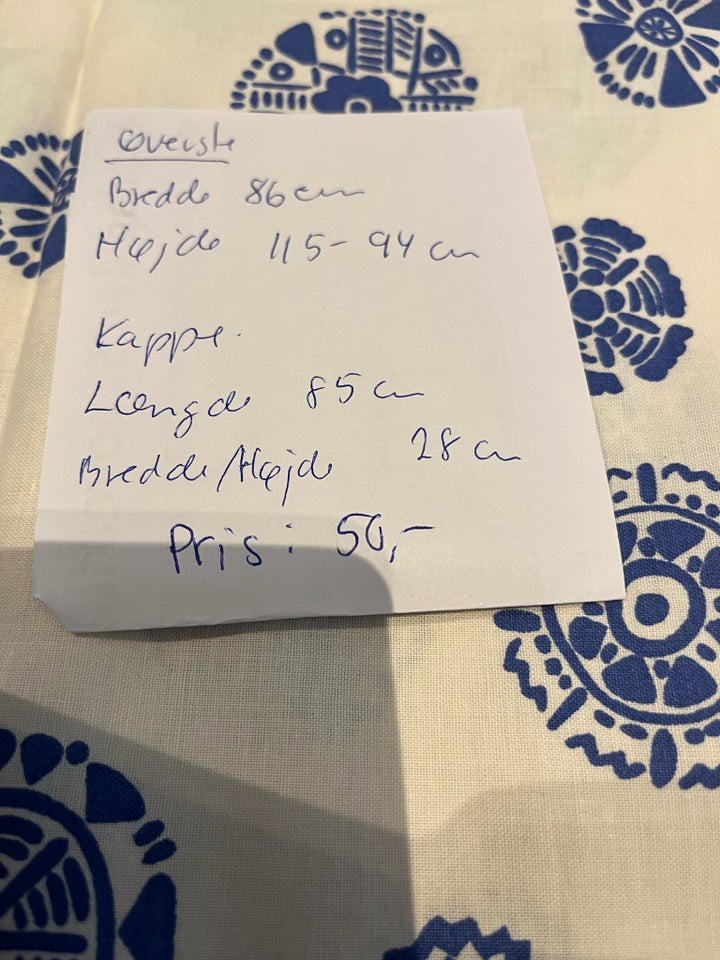 Øverste
Bredde 86 cm
Højde 115-94 cm
Kappe.
Længde 85 cm
Bredde/Højde 28 cm
Pris: 50,-